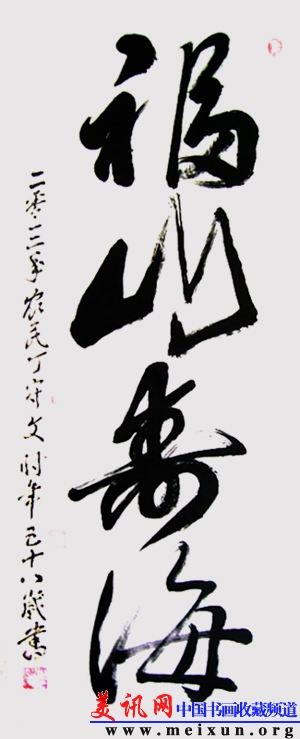 福山寿海
二零一三年农民丁守文时年五十八歲書
美讯网 中国书画收藏频道
www.meixun.org